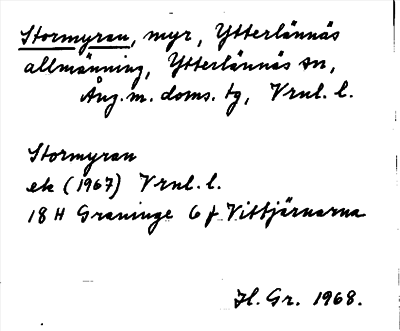 Stormyran, myr, Ytterlännäs
allmänning, Ytterlännäs sn,
Ång. m. doms. tg, Vrnl. l.
Stormyran
ek (1967) Vrnl. l.
18 H Graninge 6 f Vittjärnarna
H. Gr. 1968.